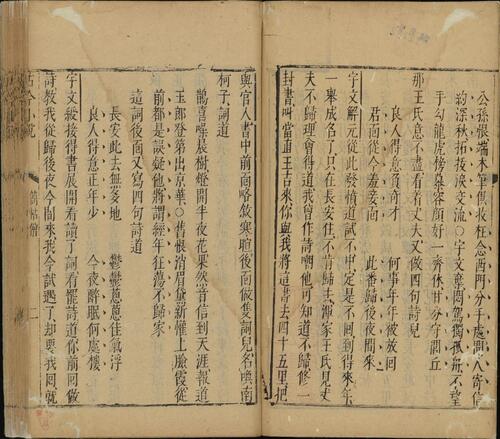 公孫恨端木筆俱收枉念西門分手處聞人寄信
約深秋拓拔淚交流○宇文棄悶駕獨孤舟不望
手勾龍虎榜慕容顏好一齊休甘分守閭丘
那王氏意不盡看着丈夫又做四句詩兒
良人得意負奇才　何事年年被放回
君面從今羞妾面　此番歸後夜間來
宇文解元從此發憤道試不中定是不回到得來年
一舉成名了只在長安住不肯歸去渾家王氏見丈
夫不歸理會得道我曾作詩嘲他可知道不歸修一
封書叫當直王吉來你與我將這書去四十五里把
與官人書中前面略敘寒暄後面做隻詞兒名喚南
柯子詞道
鵲喜噪晨樹燈開半夜花果然音信到天涯報道
玉郎登第出京華○舊恨消眉黛新歡上臉霞從
前都是誤疑他將謂經年狂蕩不歸家
這詞後面又寫四句詩道
長安此去無多地　鬱鬱蔥蔥佳氣浮
良人得意正年少　今夜醉眠何處樓
宇文綬接得書展開看讀了詞看罷詩道你前回做
詩教我從歸後夜今間來我今試遇了却要我回就
古今小說　簡帖僧　二